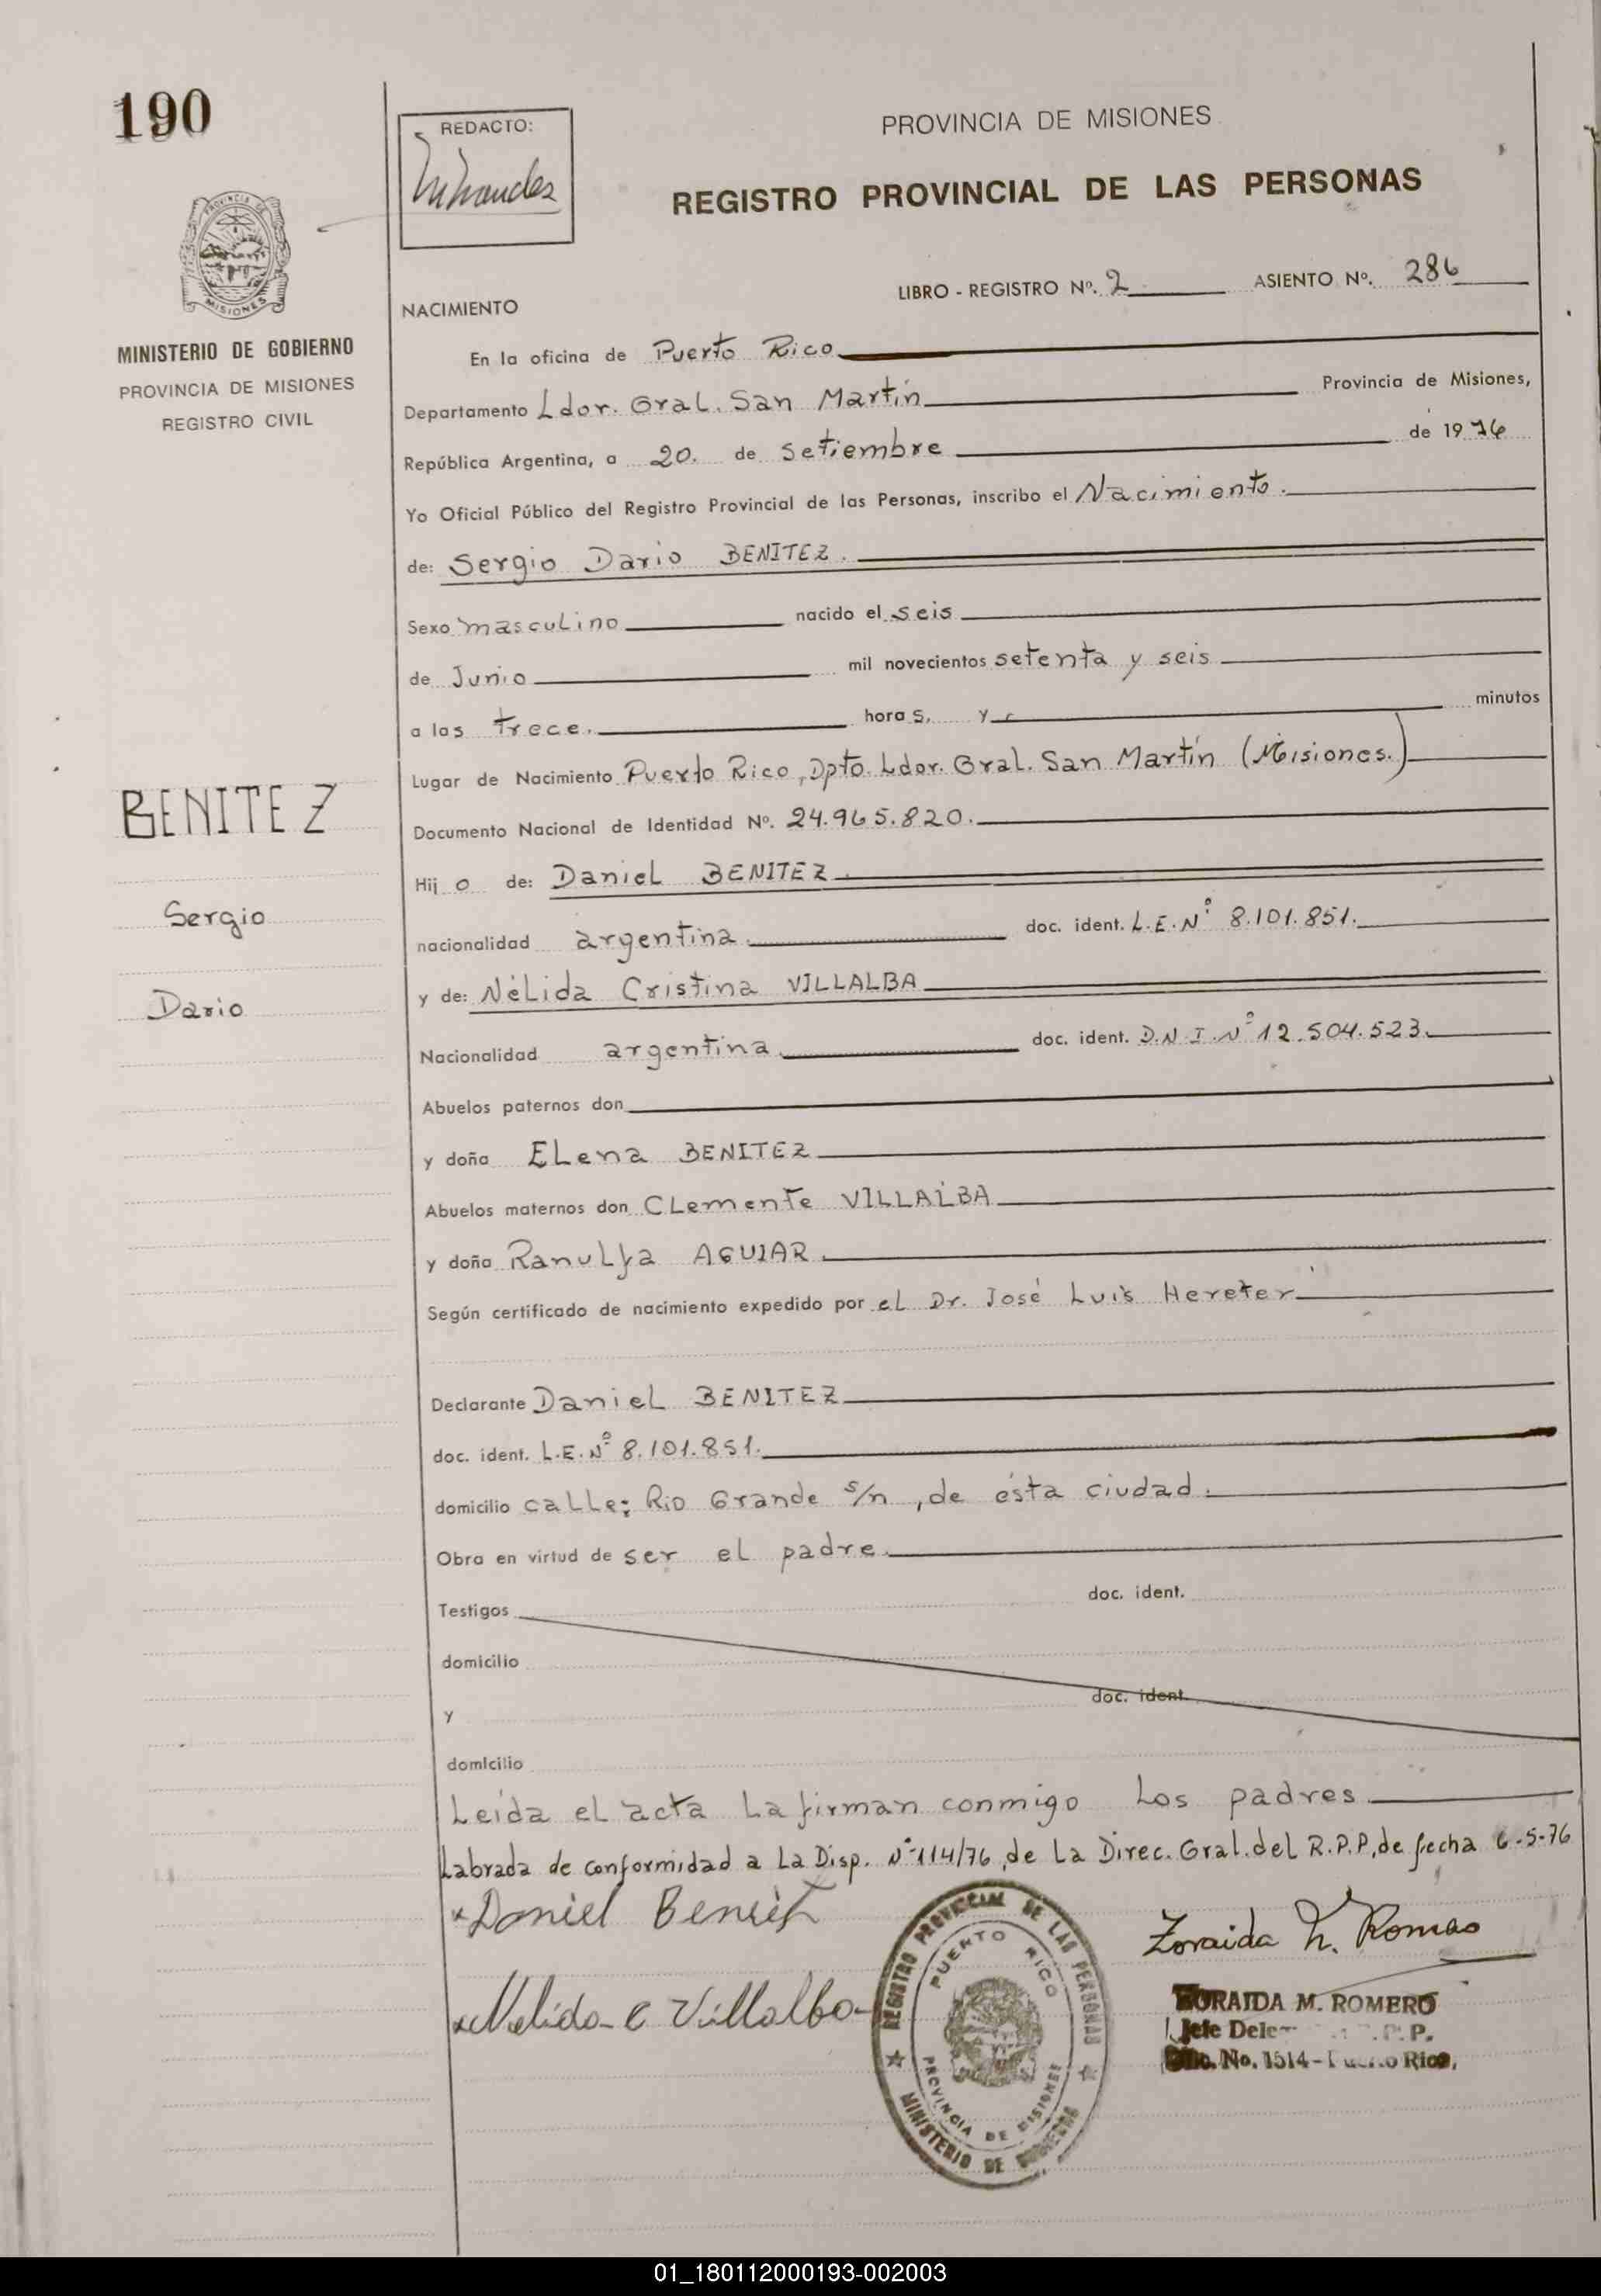 190
REDACTO:
PROVINCIA DE MISIONES
REGISTRO PROVINCIAL DE LAS PERSONAS
PROVINCIA DE
MISIONES
MINISTERIO DE GOBIERNO
PROVINCIA DE MISIONES
REGISTRO CIVIL
LIBRO - REGISTRO Nº. 2 ASIENTO Nº. 286
NACIMIENTO
En la oficina de Puerto Rico
Departamento Ldor. Gral. San Martín Provincia de Misiones,
República Argentina, a 20. de Setiembre de 1976
Yo Oficial Público del Registro Provincial de las Personas, inscribo el Nacimiento.
de: Sergio Dario BENITEZ.
Sexo masculino nacido el seis
de Junio mil novecientos setenta y seis
a las trece. horas, y minutos
Lugar de Nacimiento Puerto Rico, Dpto. Ldor. Gral. San Martín (Misiones.)
BENITEZ
Documento Nacional de Identidad Nº. 24.965.820.
Hijo de: Daniel BENITEZ.
Sergio
nacionalidad argentina. doc. ident. L.E.Nº 8.101.851.
y de: Nélida Cristina VILLALBA
Dario
Nacionalidad argentina. doc. ident. D.N.I.Nº 12.504.523.
Abuelos paternos don
y doña ELena BENITEZ
Abuelos maternos don CLemente VILLALBA
y doña Ranulfa AGUIAR.
Según certificado de nacimiento expedido por el Dr. José Luis Hereter
Declarante Daniel BENITEZ
doc. ident. L.E.Nº 8.101.851.
domicilio calle: Rio Grande s/n, de ésta ciudad.
Obra en virtud de ser el padre.
Testigos doc. ident.
domicilio
y doc. ident.
domicilio
Leída el acta la firman conmigo los padres
Labrada de conformidad a La Disp. Nº114/76, de La Direc. Gral. del R.P.P, de fecha 6-5-76
Daniel Benitez
Zoraida M. Romero
Nelida C Villalba
REGISTRO PROVINCIAL DE LAS PERSONAS
PUERTO RICO
PROVINCIA DE MISIONES
MINISTERIO DE GOBIERNO
ZORAIDA M. ROMERO
Jefe P.P.
No. 1514 - Puerto Rico,
01_180112000193-002003